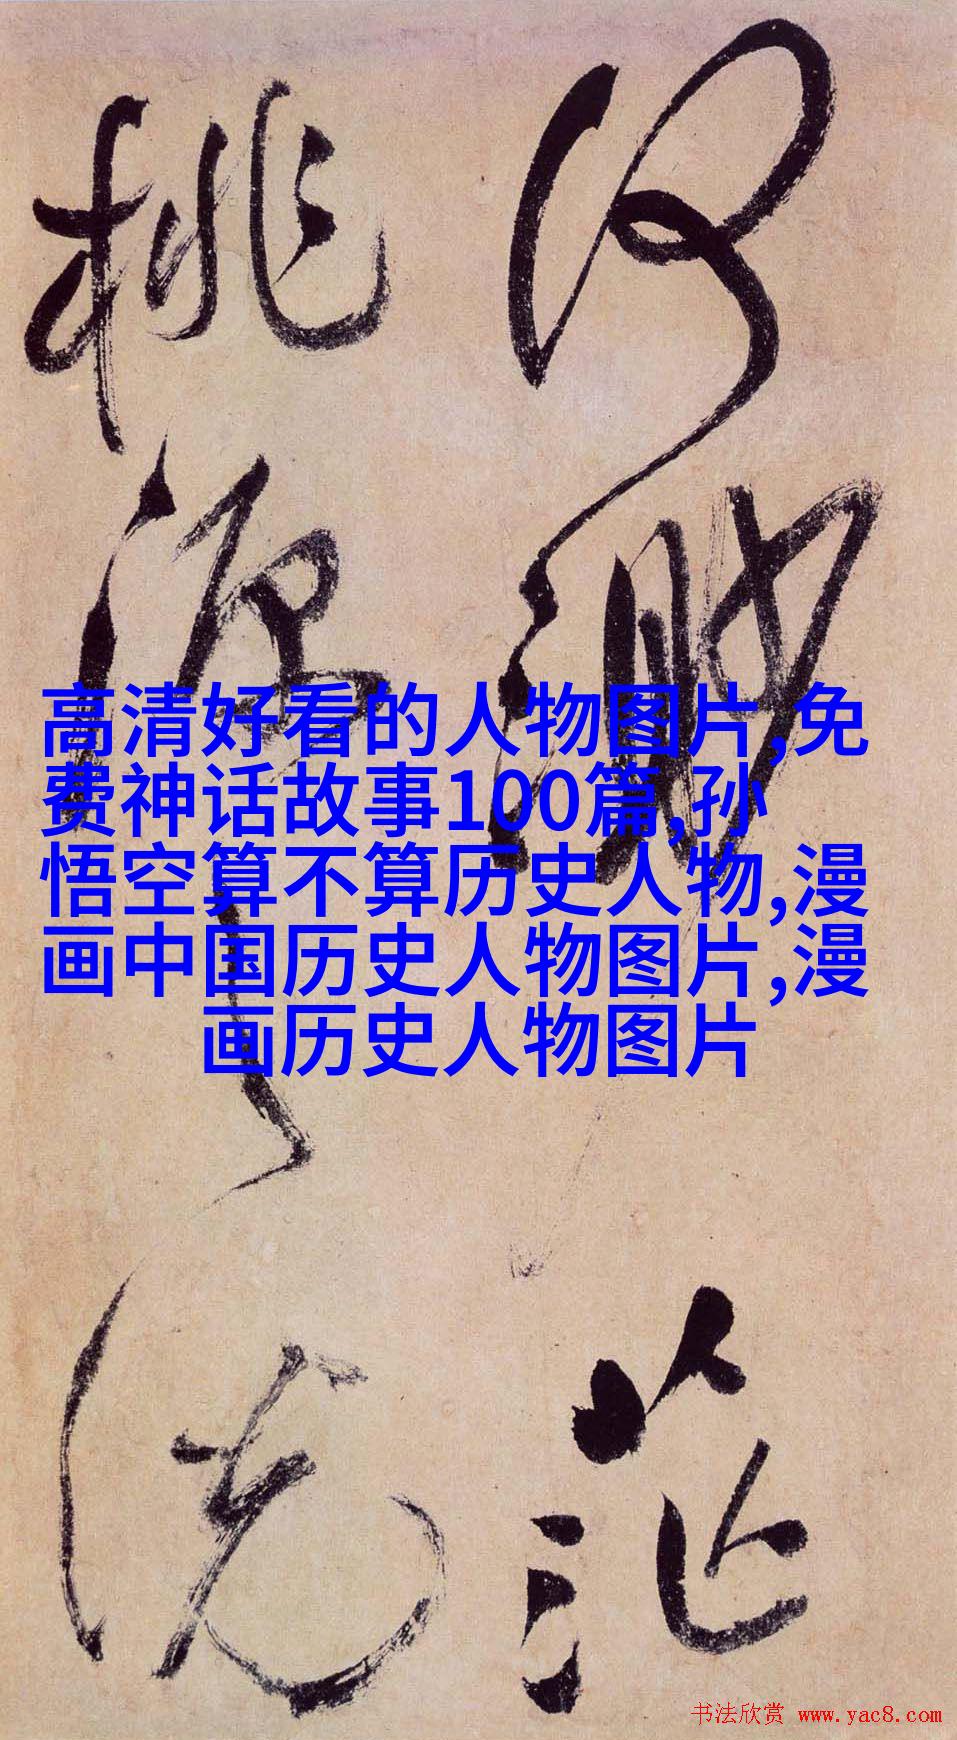 何渺茫
桃源之說
高清好看的人物图片,免
费神话故事100篇,孙
悟空算不算历史人物,漫
画中国历史人物图片,漫
画历史人物图片
书法欣赏 www.yac8.com